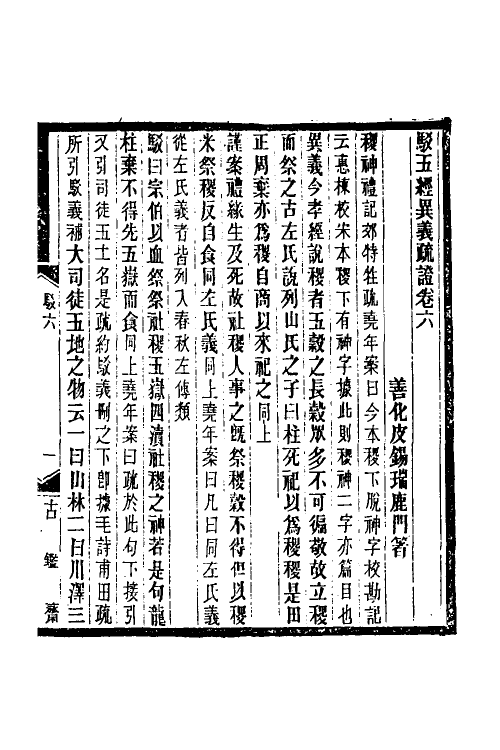 駮五經異義疏證卷六
善化皮錫瑞鹿門箸
稷神禮記郊特牲疏堯年案曰今本稷下脫神字校勘記
云惠棟校宋本稷下有神字據此則稷神二字亦篇目也
異義今孝經說稷者五穀之長穀眾多不可徧敬故立稷
而祭之古左氏說列山氏之子曰柱死祀以爲稷稷是田
正周棄亦爲稷自商以來祀之同上
謹案禮緣生及死故社稷人事之旣祭稷穀不得但以稷
米祭稷反自食同左氏義同上堯年案曰凡曰同左氏義
從左氏義者皆列入春秋左傳類
駮曰宗伯以血祭祭社稷五嶽四瀆社稷之神若是句龍
柱棄不得先五嶽而食同上堯年案曰疏於此句下接引
又引司徒五土名是疏約駮義刪之下卽據毛詩甫田疏
所引駮義補大司徒五地之物云一曰山林二曰川澤三
駮六
一
古鑑齋